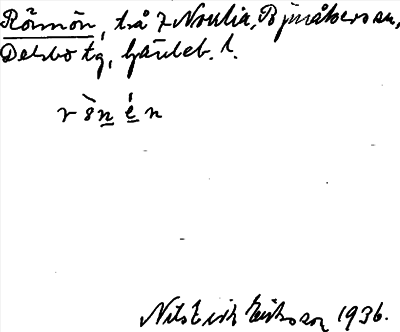 Römön, trå 7 Norrlia, Bjuråkers sn,
Delsbo tg, Gävleb. l.
r ö̀ n é n
Nils Erik Eriksson 1936.